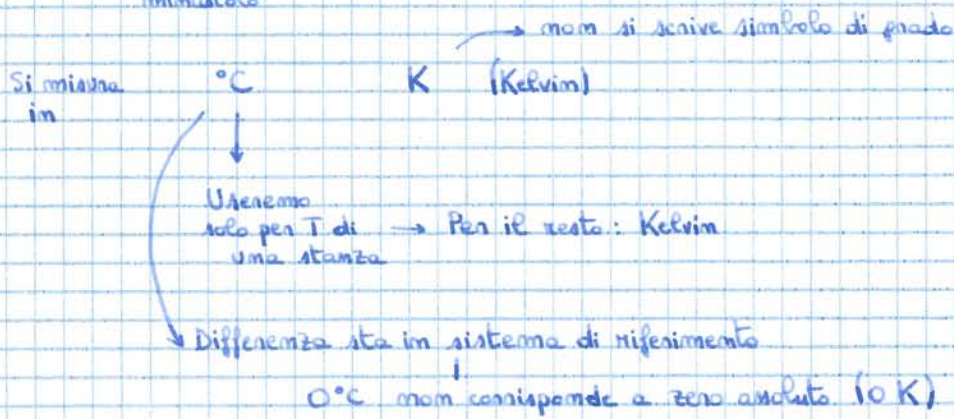 minuscolo
→ non si scrive simbolo di grado
Si misura °C K (Kelvin)
in
Useremo
solo per T di → Per il resto: Kelvin
una stanza
Differenza sta in sistema di riferimento
0°C non corrisponde a zero assoluto (0 K)